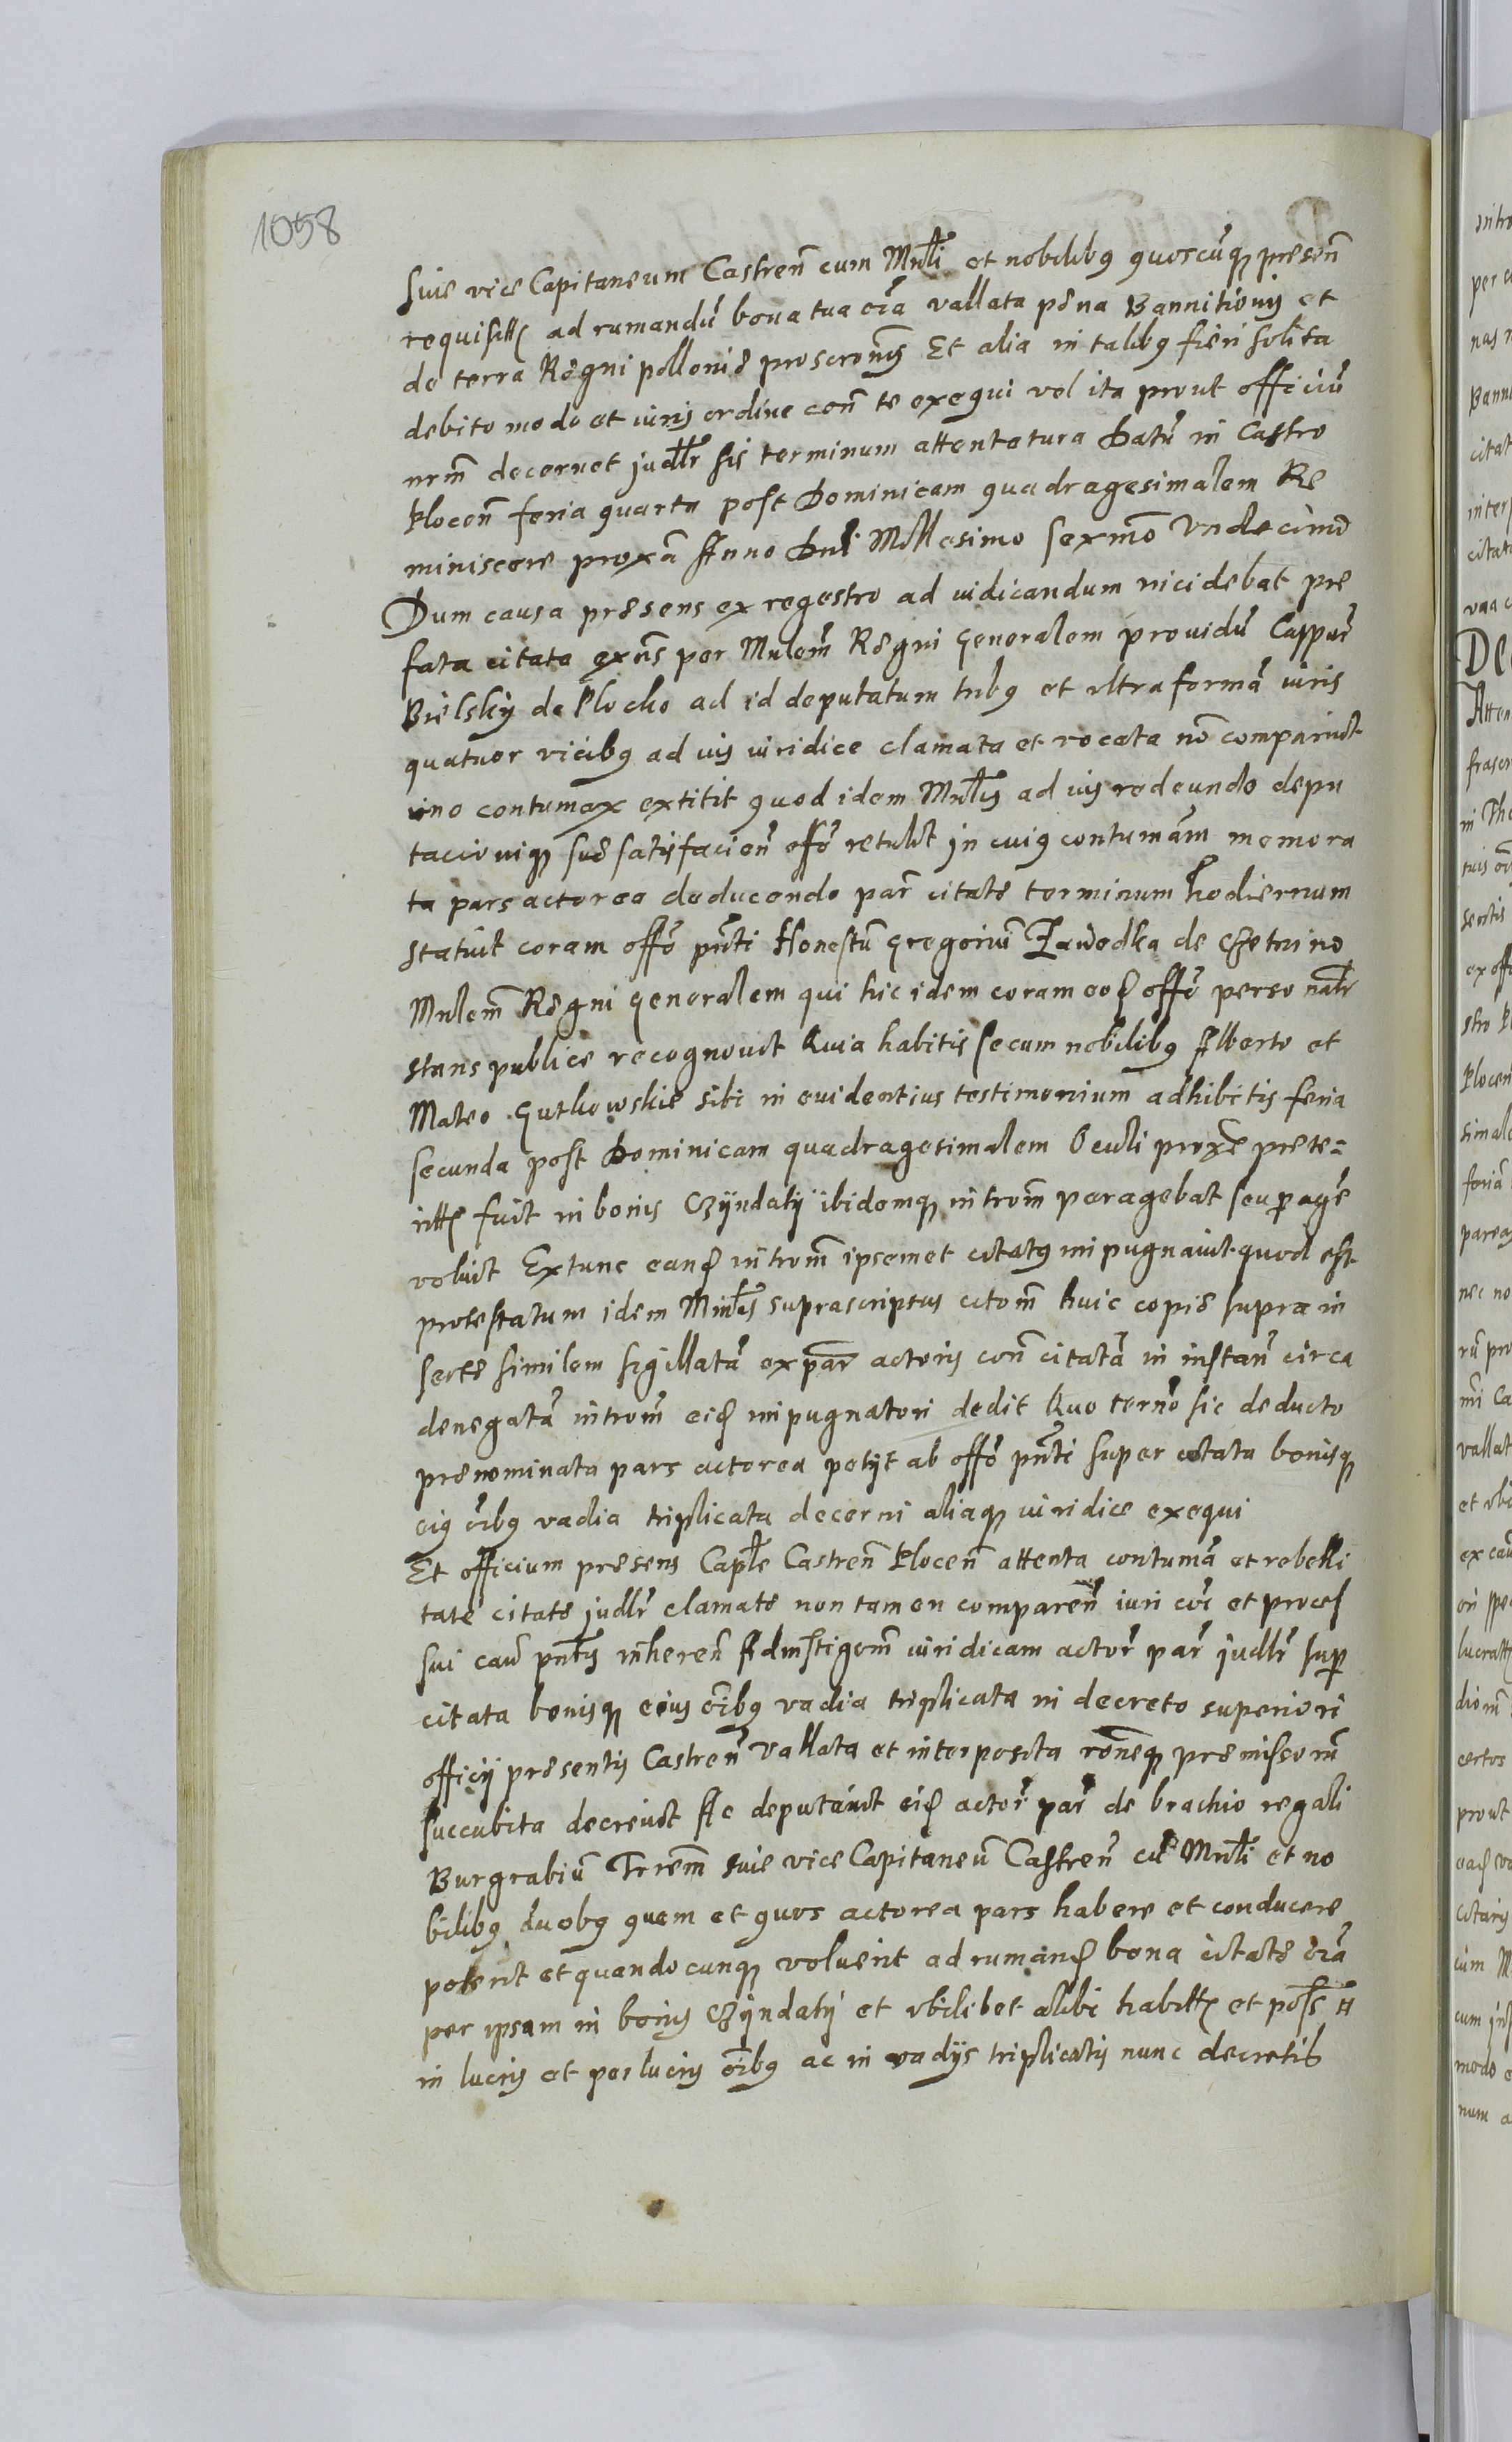 1058
suie vice Capitaneum Castreñ cum Mnłi et nobilibꝯ quoscūqꝫ preseñ
requisitꝭ ad rumandū bona tua oīa vallata pęna Bannitionis et
de terra Regni pollonię proscronis Et alia in talibꝯ fieri solita
debito modo et iuris ordine coñ te exequi vel ita prout officiū
nrm̃ decernet judłr sis terminum attentatura Datū in Castro
Plocen̄ feria quarta post Dominicam quadragesimalem Re
miniscere proxā Anno Dnī Millesimo sexm̃o Undecimo
Dum causa pręsens ex regestro ad iudicandum incidebat prę
fata citata exñs per Mnlem̃ Regni Generalem prouidū Caspar̃
Bielsky de Plocko ad id deputatum tribꝯ et vltra formā iuris
quatuor vicibꝯ ad ius iuridice clamata et vocata nō comparuit
imo contumax extitit quod idem Mnłis ad ius redeundo depu
tacioniqꝫ suę satisfacieñ offō retulit in cuiꝯ contumām memora
ta pars actorea deducendo par̃ citatę terminum hodiernum
statuit coram offō pñti Honestū Gregorium Zawodka de Chetnino
Mnlem̃ Regni Generalem qui hic idem coram eoꝭ offō personałr
stans publice recognouit Quia habitis secum nobilibꝯ Alberto et
Mateo Gutkowskie sibi in euidentius testimonium adhibitis feria
secunda post Dominicam quadragesimalem Oculi proxę pręte=
ritꝭ fuit in bonis Czyndaty ibidemqꝫ introm̃ peragebat seu ꝑagē
voluit Extunc eanꝭ introm̃ ipsemet citatꝯ impugnauit quod est
protestatum idem Minłis suprascriptus citom̃ huic copię supra in
sertę similem sigillatā ex par̃ actoris con̄ citatā in instan̄ circa
denegatā introm̃ eiꝭ impugnatori dedit Quo ternō sic deducto
pręnominata pars actorea petyt ab offō pñti super citata bonisqꝫ
eiꝯ oībꝯ vadia triplicata decerni aliaqꝫ iuridice exequi
Et officium pręsens Capłe Castren̄ Plocen̄ attenta contumā et rebelli
tatę citatę judłr clamatę non tamen comparen̄ iuri cōi et proces
sui cau pñtis inheren̄ Ad instigom̃ iuridicam actor̃ par̃ judłr suꝑ
citata bonisqꝫ eius oībꝯ vadia triplicata in decreto superiori
officij pręsentis Castren̄ vallata et interposita rōneqꝫ pręmissorū
succubita decreuit Ac deputauit eiꝭ actor̃ par̃ de brachio regali
Burgrabiū Trrem̃ suie vice Capitaneū Castren̄ cū Mnłi et no
bilibꝯ duobꝯ quem et quos actorea pars habere et conducere
poterit et quandocunqꝫ voluerit ad rumanꝭ bona citatę oīa
per ipsam in bonis Czyndaty et vbilibet alibi habitꝭ et pos̄s
in lucris et perlucris oībꝯ ac in vadijs triplicatis nunc decretis